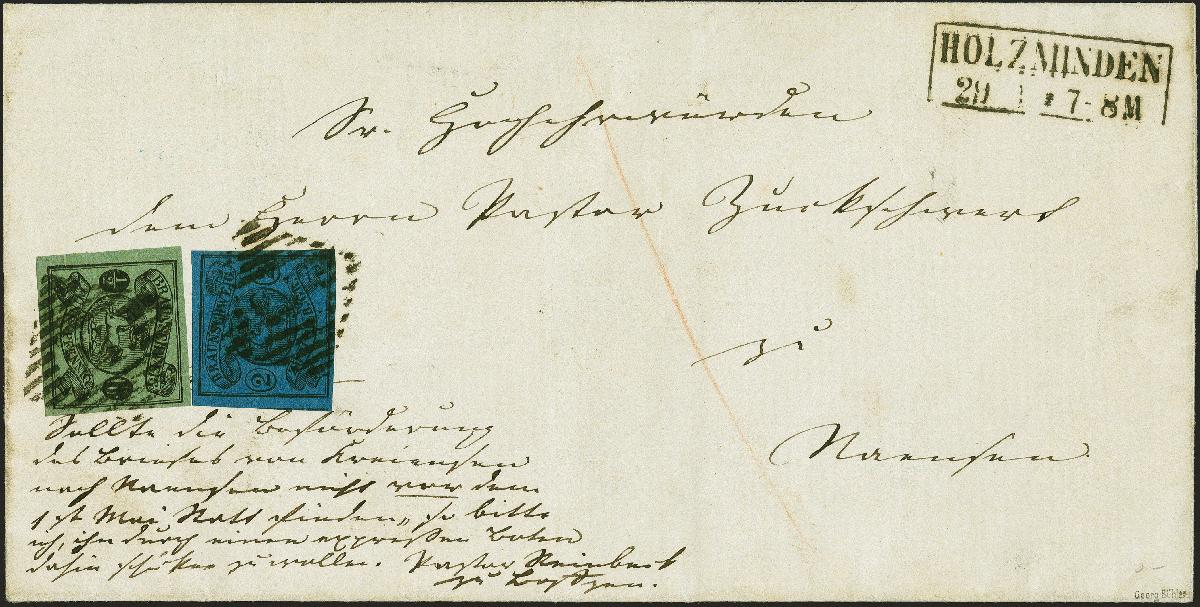 HOLZMINDEN
29 7-8 M
Sr. Hochehrwürden
dem Herrn Pastor Zuckschwert
zu
Naensen
BRAUNSCHWEIG
2
Sollte die Beförderung
des Briefes von Kreiensen
nach Naensen nicht vor dem
1st Mai Statt finden, so bitte
ich, ihn durch einen expressen Boten
dahin schicken zu wollen. Pastor Reinbeck
zu
Georg Bühler